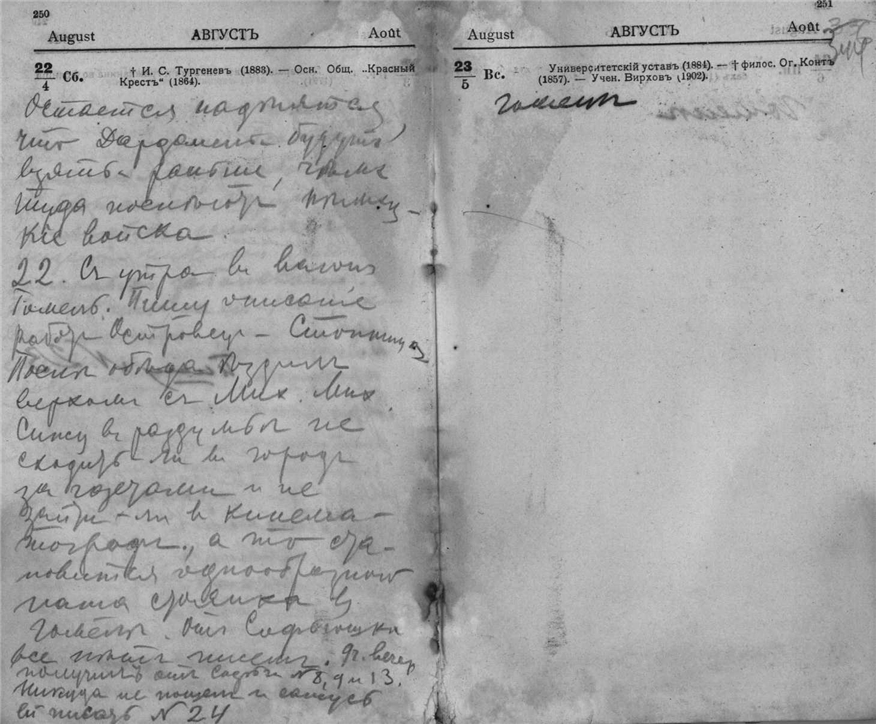 250
August АВГУСТЪ Août
22/4 Сб. † И. С. Тургеневъ (1883). — Осн. Общ. „Красный
Крестъ“ (1864).
Остается надѣятся
что Дарданеллы будутъ
взяты раньше, чѣмъ
туда поспѣютъ
войска.
22. Съ утра въ вагонѣ
Гомель. Пишу описаніе
работъ Островецъ – Стопница
Послѣ обѣда ѣздилъ
верхомъ съ Мих. Мих.
Сижу въ раздумьи не
сходить-ли въ городъ
за газетами и не
зайти-ли въ кинема-
тографъ, а то ста-
новится однообразной
наша стоянка въ
Гомелѣ. Отъ Софьюшки
все нѣтъ писемъ. вечер
получилъ отъ № 8, 9 и 13.
Никуда не пошелъ и
ей писать № 24
251
August АВГУСТЪ Août
23/5 Вс. Университетскій уставъ (1884). — † филос. Ог. Контъ
(1857). — Учен. Вирховъ (1902).
Гомель